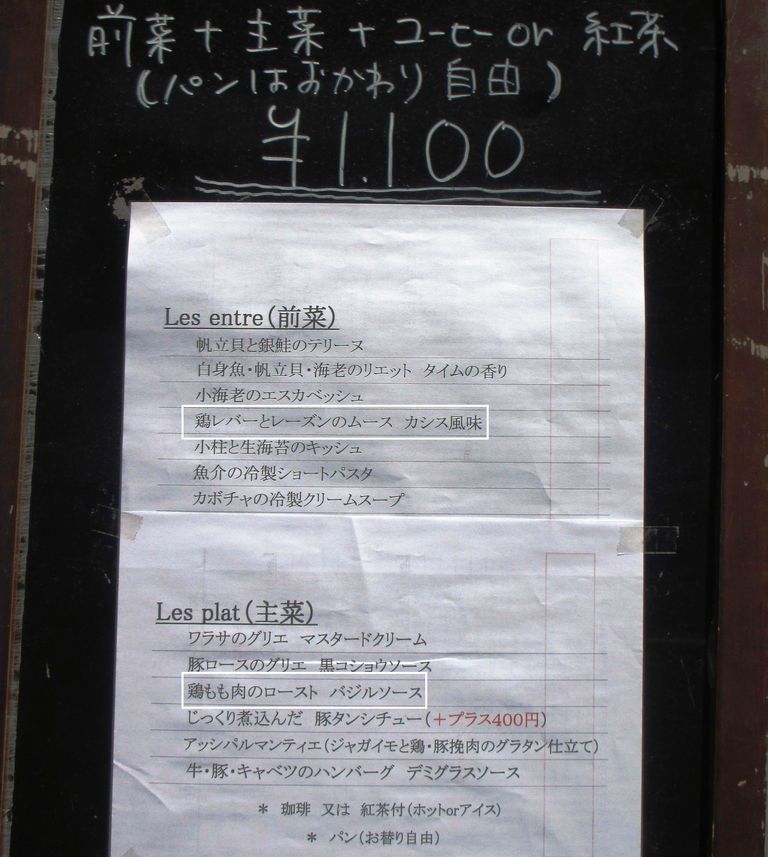 前菜+主菜+コーヒーor 紅茶
(パンはおかわり自由)
¥1.100
Les entre(前菜)
帆立貝と銀鮭のテリーヌ
白身魚・帆立貝・海老のリエット タイムの香り
小海老のエスカベッシュ
鶏レバーとレーズンのムース カシス風味
小柱と生海苔のキッシュ
魚介の冷製ショートパスタ
カボチャの冷製クリームスープ
Les plat(主菜)
ワラサのグリエ マスタードクリーム
豚ロースのグリエ 黒コショウソース
鶏もも肉のロースト バジルソース
じっくり煮込んだ 豚タンシチュー(+プラス400円)
アッシパルマンティエ(ジャガイモと鶏・豚挽肉のグラタン仕立て)
牛・豚・キャベツのハンバーグ デミグラスソース
* 珈琲 又は 紅茶付(ホットorアイス)
* パン(お替り自由)